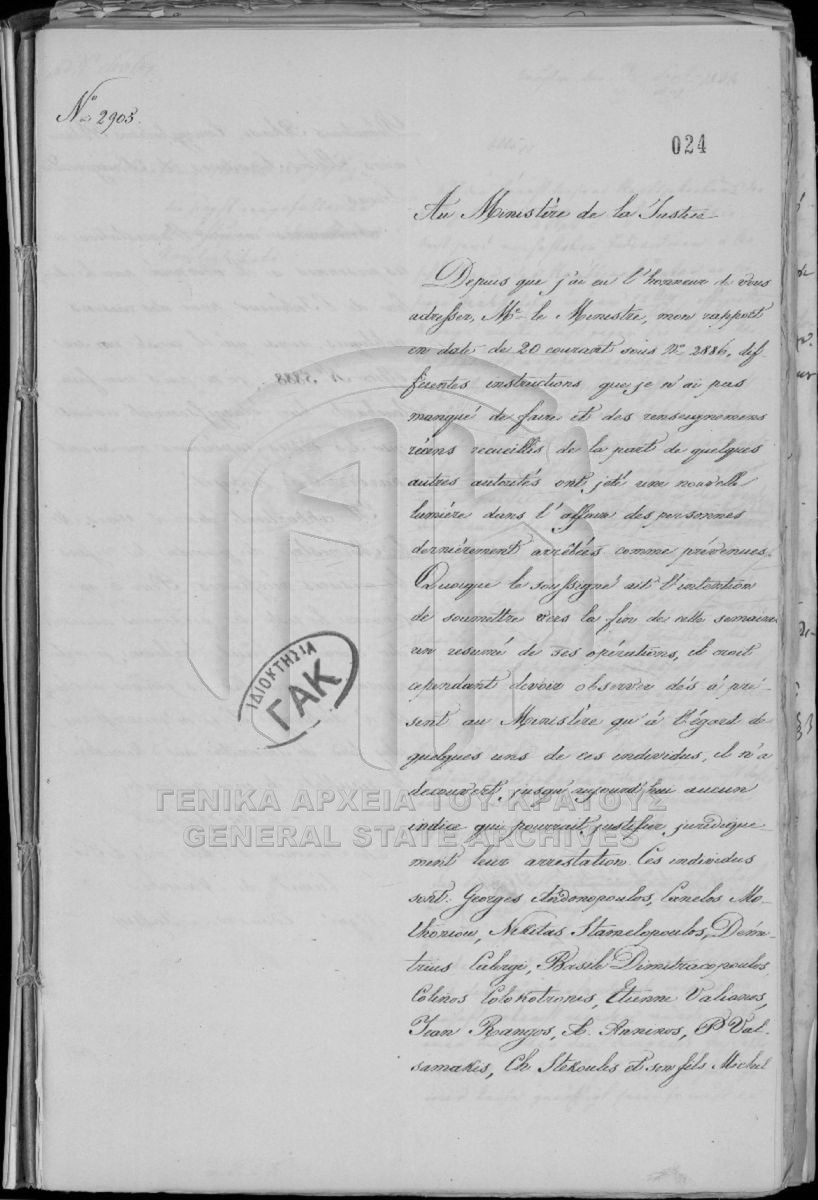 No 2905.
024
Au Ministère de la Justice
Depuis que j'ai eu l'honneur de vous
adresser, Mr le Ministre, mon rapport
en date de 20 courant sous No 2886, dif-
férentes instructions que je n'ai pas
manqué de faire et des renseignemens
récens recueillis de la part de quelques
autres autorités ont jeté une nouvelle
lumière dans l'affaire des personnes
dernièrement arrêtées comme prévenues.
Quoique le soussigné ait l'intention
de soumettre vers la fin de cette semaine
un resumé de ses opérations, il croit
cependant devoir observer dés à pré-
sent au Ministère qu'à l'égard de
quelques uns de ces individus, il n'a
decouvert jusqu'aujourd'hui aucun
indice qui pourrait justifier juridique-
ment leur arrestation. Ces individus
sont: Georges Andonopoulos, Canelos Mo-
thoniou, Nikitas Stamelopoulos, Démé-
trius Calergi, Basile Dimitracopoulos
Colinos Colokotronis, Étienne Valianos,
Jean Rangos, A. Anninos, P Val-
samakis, Ch Stekoulis et son fils Michel
ΙΔΙΟΚΤΗΣΙΑ
ΓΑΚ
ΓΕΝΙΚΑ ΑΡΧΕΙΑ ΤΟΥ ΚΡΑΤΟΥΣ
GENERAL STATE ARCHIVES